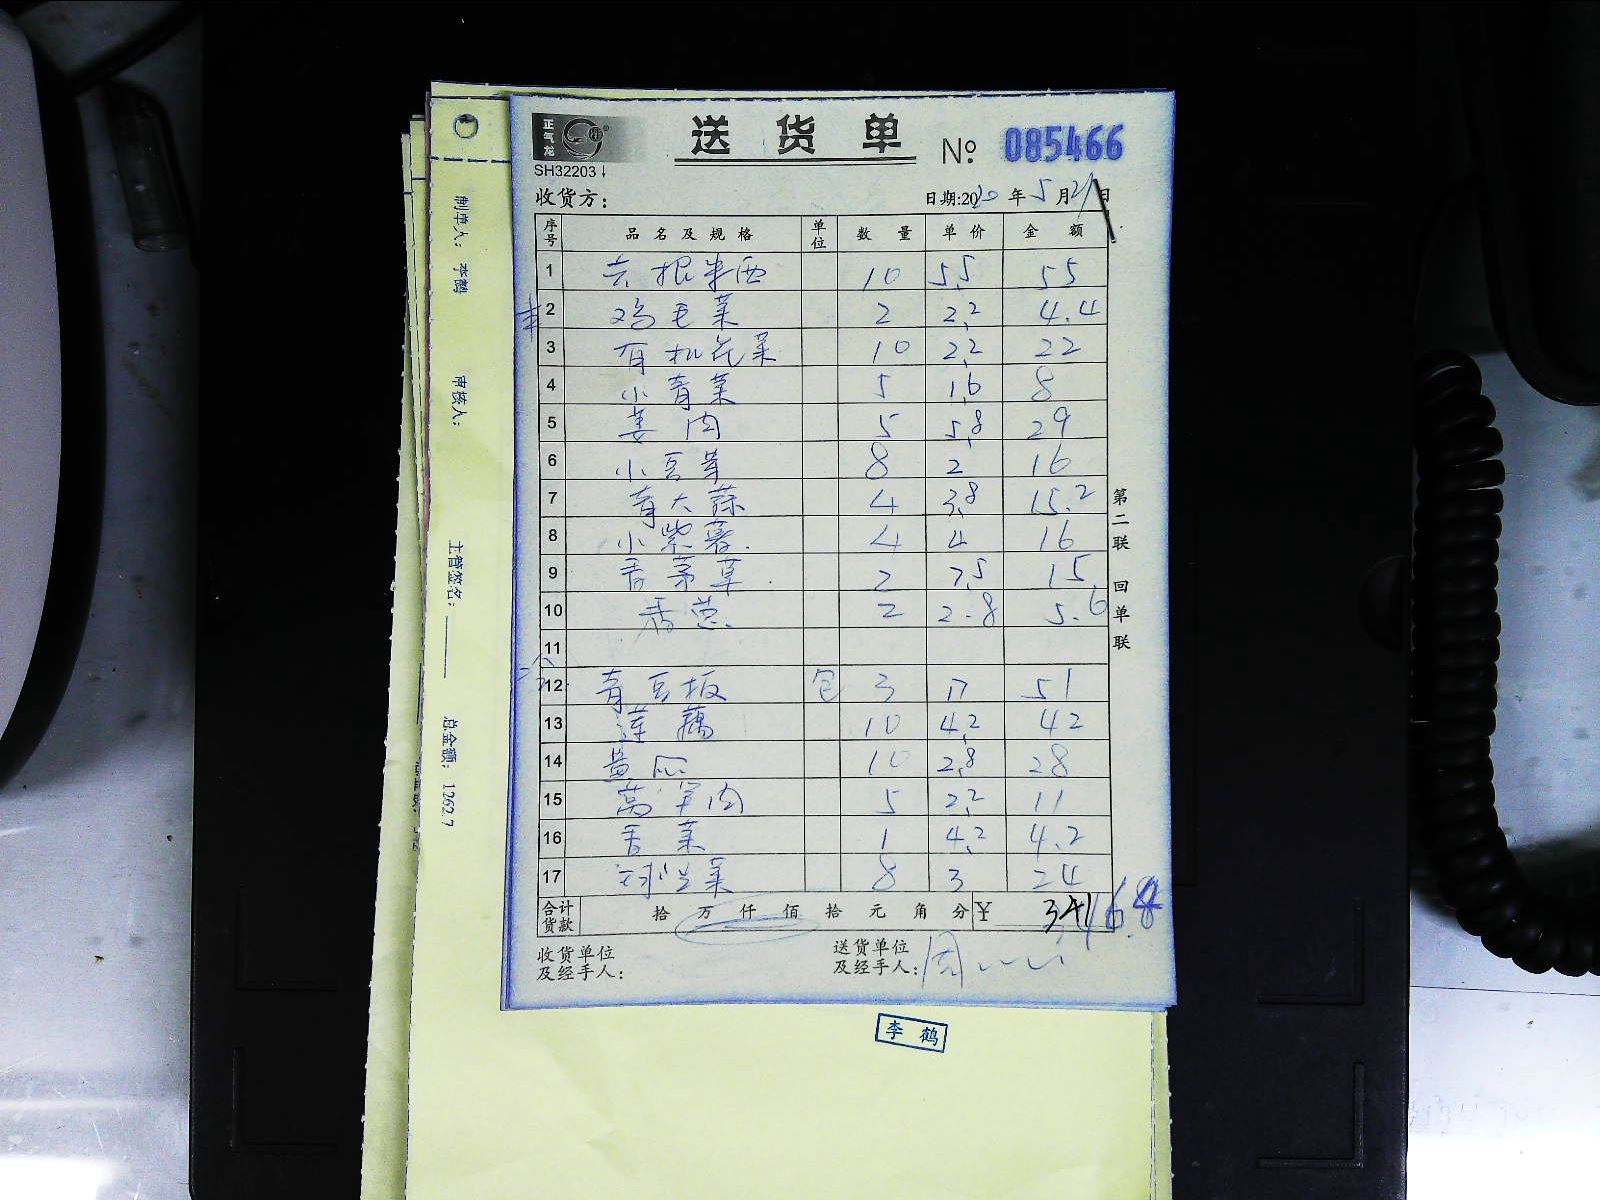 正气龙
送货单
№ 085466
SH32203↓
收货方：
日期:2020年5月21日
序号 品名及规格 单位 数量 单价 金额
1 去根半西 10 5.5 55
2 鸡毛菜 2 2.2 4.4
3 有机花菜 10 2.2 22
4 小青菜 5 1.6 8
5 姜肉 5 5.8 29
6 小豆芽 8 2 16
7 青大蒜 4 3.8 15.2
8 小紫薯 4 4 16
9 香茅草 2 7.5 15
10 香葱 2 2.8 5.6
11
12 青豆板 包 3 17 51
13 莲藕 10 4.2 42
14 黄瓜 10 2.8 28
15 莴笋肉 5 2.2 11
16 香菜 1 4.2 4.2
17 球生菜 8 3 24
合计货款 拾万仟佰拾元角分 ¥
收货单位及经手人：
送货单位及经手人：周
第二联 回单联
制单人： 李鹤
审核人：
主管签名：
总金额： 1262.7
李鹤